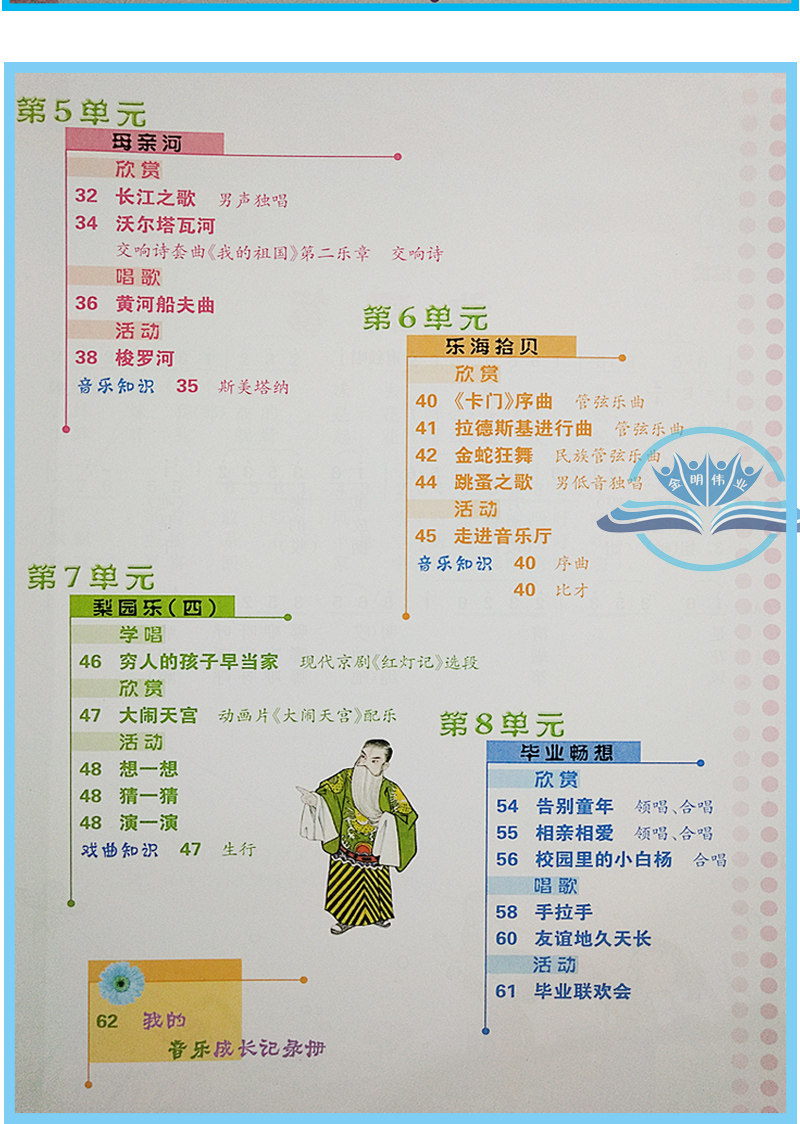 第5单元
母亲河
欣赏
32 长江之歌 男声独唱
34 沃尔塔瓦河
交响诗套曲《我的祖国》第二乐章 交响诗
唱歌
36 黄河船夫曲
活动
38 梭罗河
音乐知识 35 斯美塔纳
第6单元
乐海拾贝
欣赏
40 《卡门》序曲 管弦乐曲
41 拉德斯基进行曲 管弦乐曲
42 金蛇狂舞 民族管弦乐曲
44 跳蚤之歌 男低音独唱
活动
45 走进音乐厅
音乐知识 40 序曲
40 比才
金明伟业
第7单元
梨园乐(四)
学唱
46 穷人的孩子早当家 现代京剧《红灯记》选段
欣赏
47 大闹天宫 动画片《大闹天宫》配乐
活动
48 想一想
48 猜一猜
48 演一演
戏曲知识 47 生行
第8单元
毕业畅想
欣赏
54 告别童年 领唱、合唱
55 相亲相爱 领唱、合唱
56 校园里的小白杨 合唱
唱歌
58 手拉手
60 友谊地久天长
活动
61 毕业联欢会
62 我的
音乐成长记录册